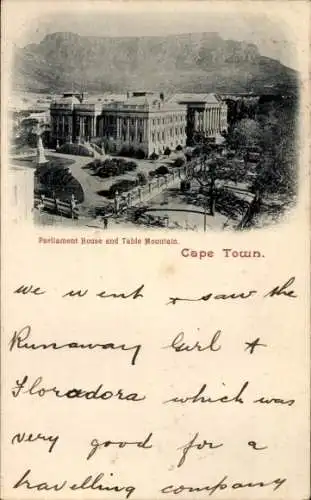 Parliament House and Table Mountain.
Cape Town.
we went + saw the
Runaway girl +
Floradora which was
very good for a
travelling company